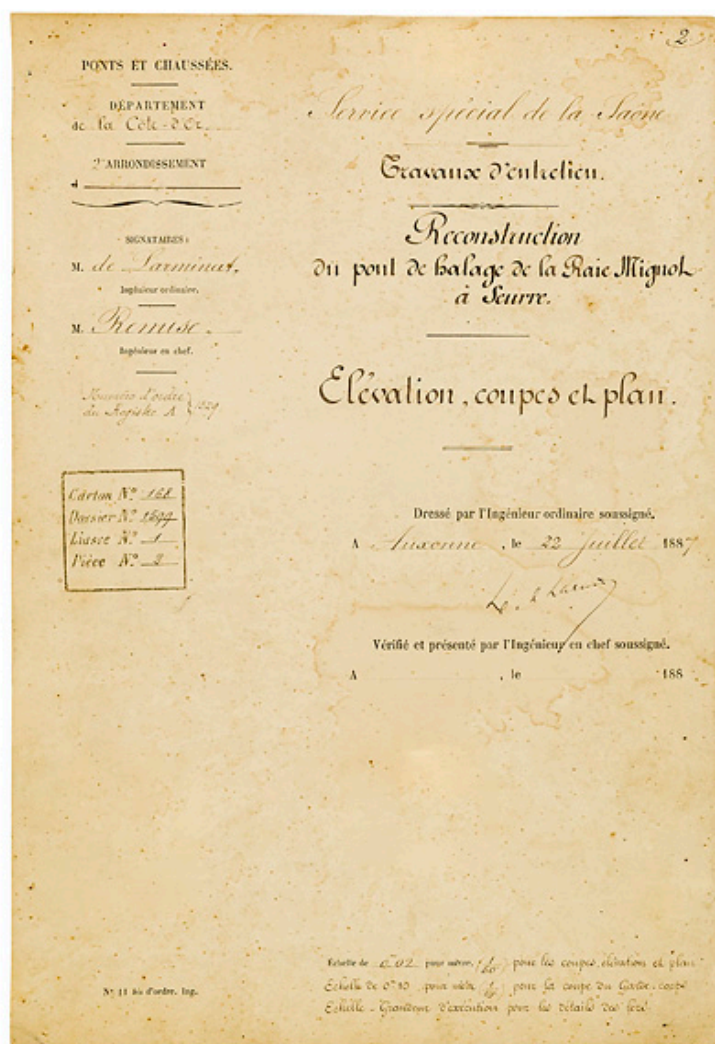 2
PONTS ET CHAUSSÉES.
DÉPARTEMENT
de la Côte-d'Or
2e ARRONDISSEMENT
d
SIGNATAIRES :
M. de Larminat.
Ingénieur ordinaire.
M. Remise.
Ingénieur en chef.
Numéro d'ordre
du Registre A
Carton No 168
Dossier No
Liasse No 1
Pièce No
No 11 bis d'ordre. Ing.
Service spécial de la Saône
Travaux d'entretien.
Reconstruction
du pont de halage de la Raie Mignot
à Seurre.
Elévation, coupes et plan.
Dressé par l'Ingénieur ordinaire soussigné.
A Auxonne, le 22 Juillet 1887
Vérifié et présenté par l'Ingénieur en chef soussigné.
A , le 188
Échelle de 0m02 pour mètre, pour les coupes, élévation et plan
Echelle de 0m10 pour mètre pour la coupe du Garde-corps
Echelle - Grandeur d'exécution pour les détails des fers